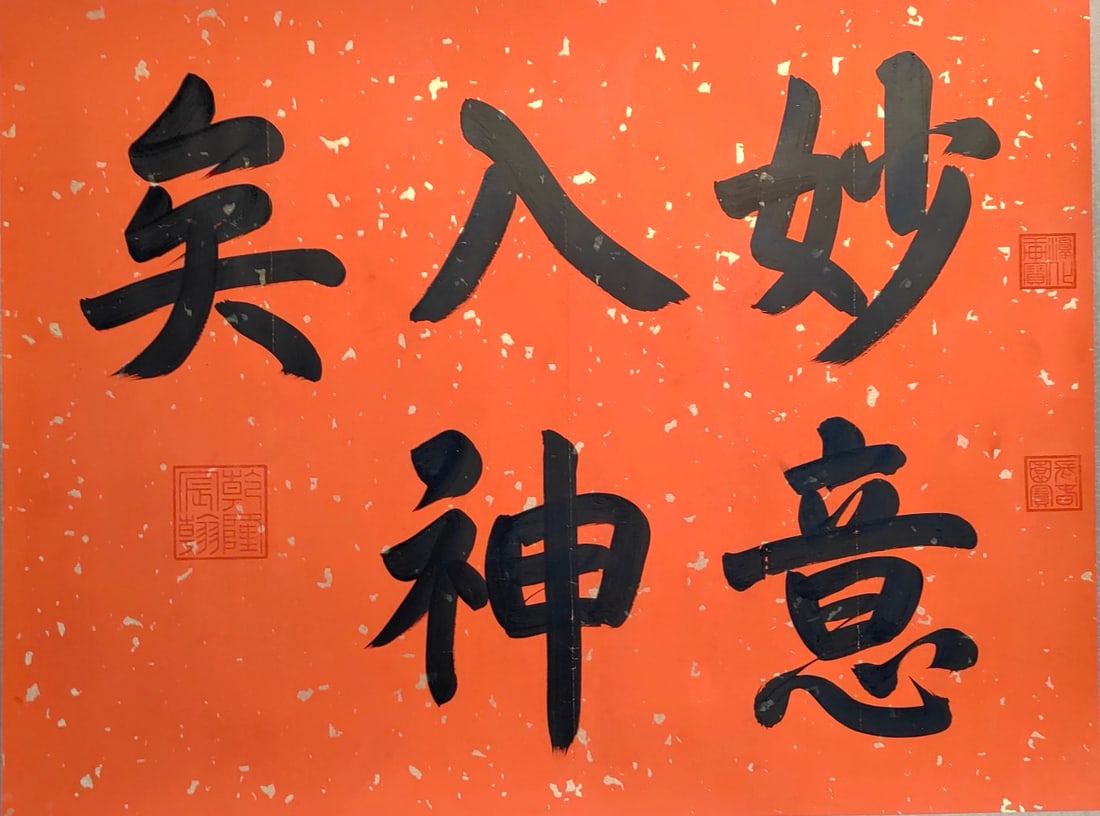 妙意
入神
矣
乾隆
宸翰